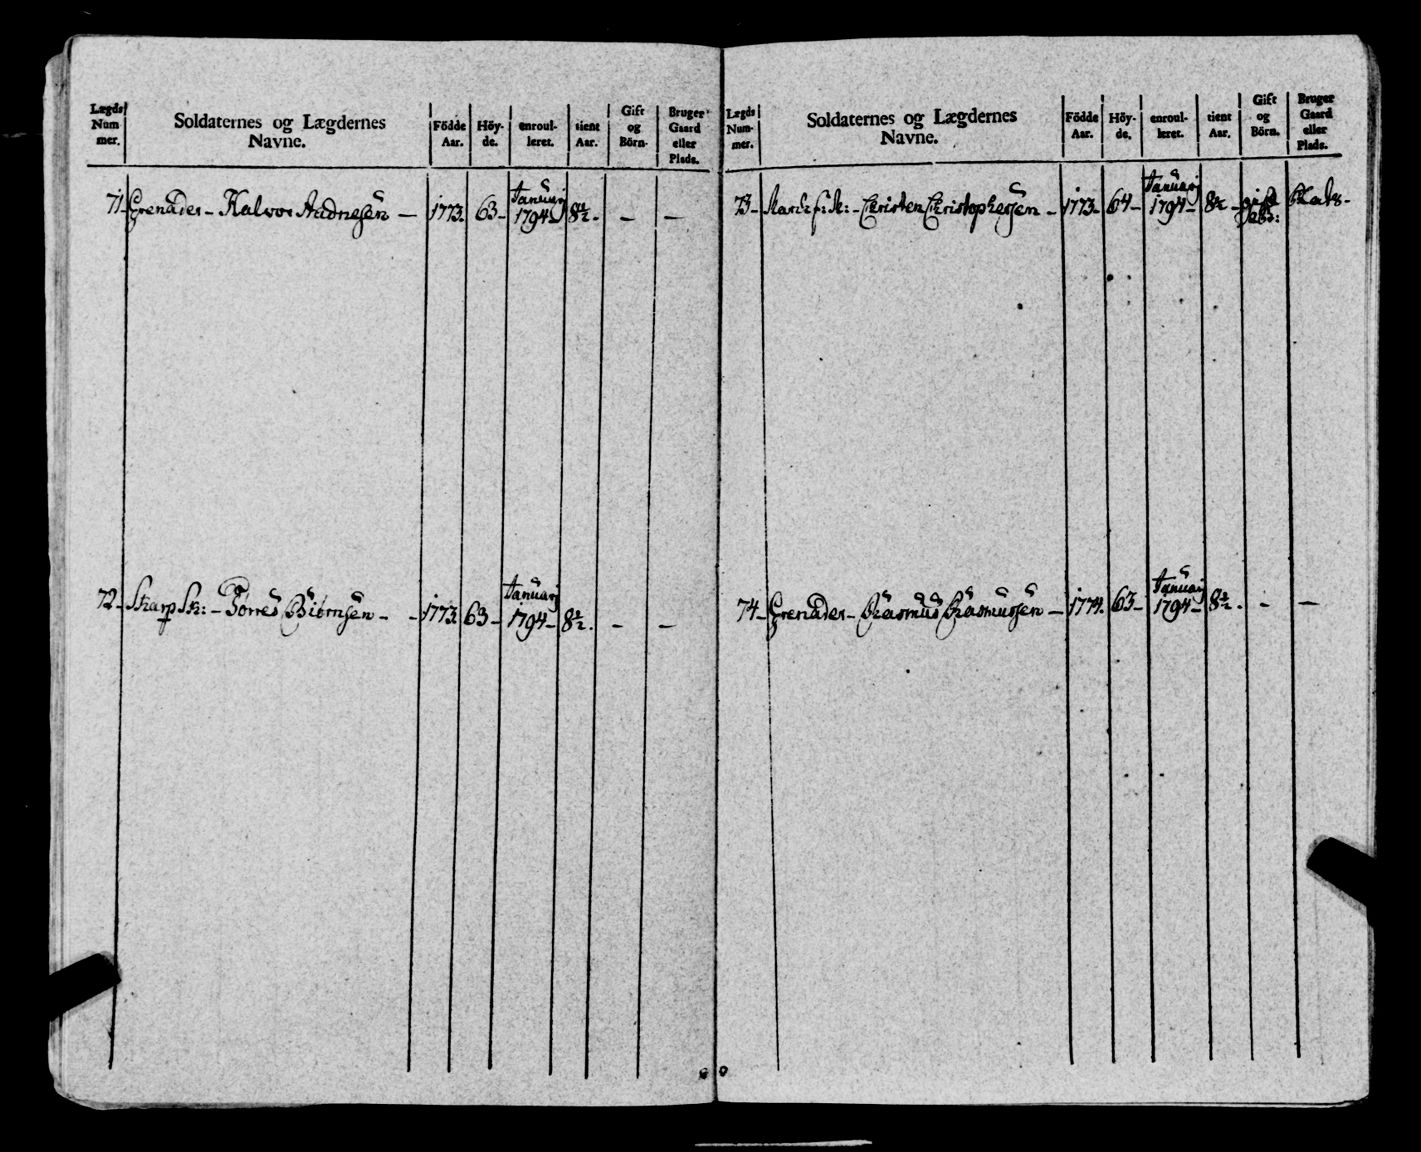 Lægds Num mer.
Soldaternes og Lægdernes Navne.
Födde Aar.
Höy- de.
enroul- leret.
tient Aar.
Gift og Börn.
Bruger Gaard eller Plads.
71 Grenader - Halvor Aadnesen - 1773. 63 - Januarj 1794 - 8½. - -
72 - Skarp Sk: - Torres Biörnsen - - 1773. 63 - Januarj 1794 - 8½. - -
Lægds Num- mer.
Soldaternes og Lægdernes Navne.
Födde Aar.
Höy- de.
enroul- leret.
tient Aar.
Gift og Börn.
Bruger Gaard eller Plads.
73 - Christen Christophersen - 1773 - 64 - Januarj 1794 - 8½ - gift Plads -
74 - Grenader - Rasmus Rasmussen - 1774. 63 - Januarj 1794 - 8½. - -